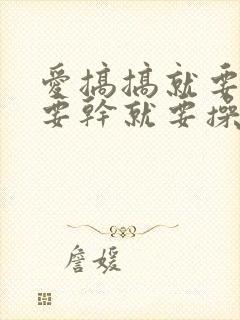 愛搞搞就要
要幹就要操
詹媛